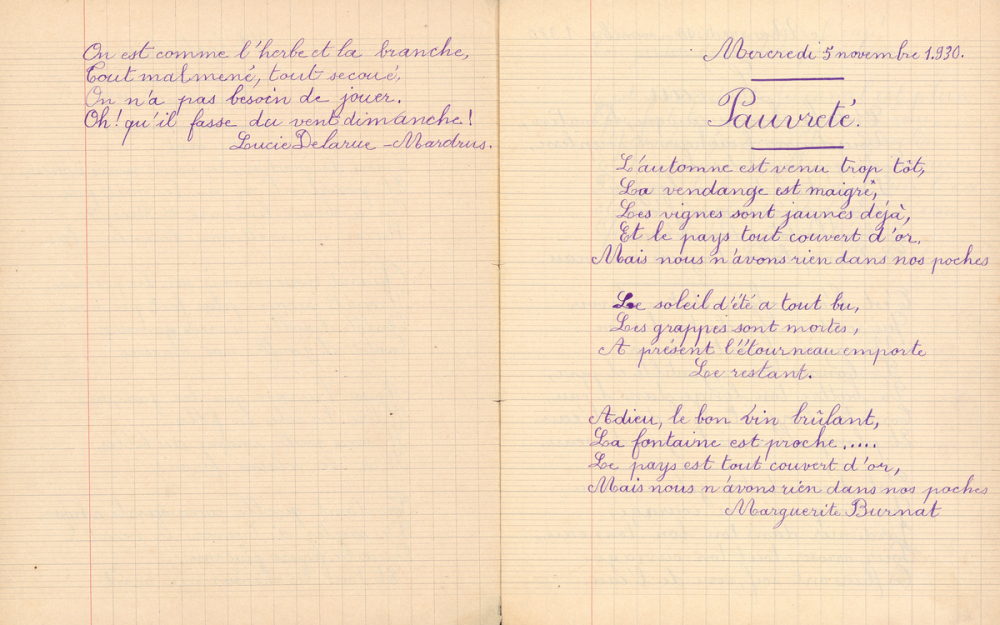 On est comme l'herbe et la branche,
Tout malmené, tout secoué,
On n'a pas besoin de jouer.
Oh! qu'il fasse du vent dimanche!
Lucie Delarue - Mardrus.
Mercredi 5 novembre 1.930.
Pauvreté.
L'automne est venu trop tôt,
La vendange est maigre,
Les vignes sont jaunes déjà,
Et le pays tout couvert d'or.
Mais nous n'avons rien dans nos poches
Le soleil d'été a tout bu,
Les grappes sont mortes,
A présent l'étourneau emporte
Le restant.
Adieu, le bon vin brûlant,
La fontaine est proche.....
Le pays est tout couvert d'or,
Mais nous n'avons rien dans nos poches
Marguerite Burnat